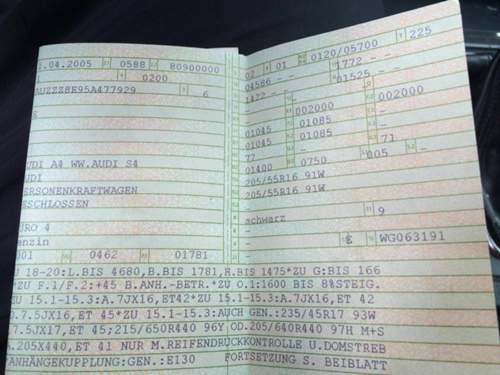 .04.2005 0588 B0900000
0200
AUZZZ8E95A477929 6
UDI A4 WW.AUDI S4
UDI
ERSONENKRAFTWAGEN
ESCHLOSSEN
URO 4
enzin
001 0462 01781
02 01 0120/05700 225
04586 - - 1772 - -
1422 - - 01525 - -
- 002000 - 002000
01045 01085 - -
01045 01085 - -
77 - 71
01400 0750 005 -
205/55R16 91W
205/55R16 91W
-
-
schwarz 9
-
€ WG063191
U 18-20:L.BIS 4680,B.BIS 1781,H.BIS 1475*ZU G:BIS 166
*ZU F.1/F.2:+45 B.ANH.-BETR.*ZU O.1:1600 BIS 8%STEIG.
ZU 15.1-15.3:A.7JX16,ET42*ZU 15.1-15.3:A.7JX16,ET 42
D.7.5JX16,ET 45*ZU 15.1-15.3:AUCH GEN.:235/45R17 93W
.7.5JX17,ET 45;215/650R440 96Y,OD.205/640R440 97H M+S
A.205X440,ET 41 NUR M.REIFENDRUCKKONTROLLE U.DOMSTREB
*ANHÄNGEKUPPLUNG:GEN.:E130 FORTSETZUNG S. BEIBLATT